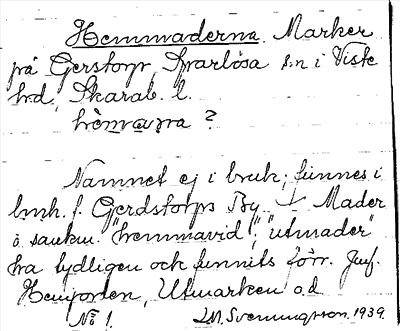 Hemmaderna. Marker
på Gerstorp, Sparlösa s:n i Viste
hd, Skarab. l.
Namnet ej i bruk; finnes i
lmh. f. Gerdstorps By. Mader
o samm. "hemmavid", "utmader"
ha tydligen och funnits förr. Jmf.
Hemjorden, Utmarken o.d.
No 1. I.M. Svenungsson. 1939.